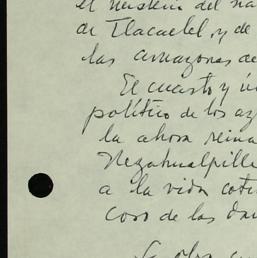 el misterio del na
de Tlacaelel, y de
las amazonas de
El cuarto y ú
político de los az
la ahora reina
Nezahualpilli
a la vida coti
coro de las dan
La obra